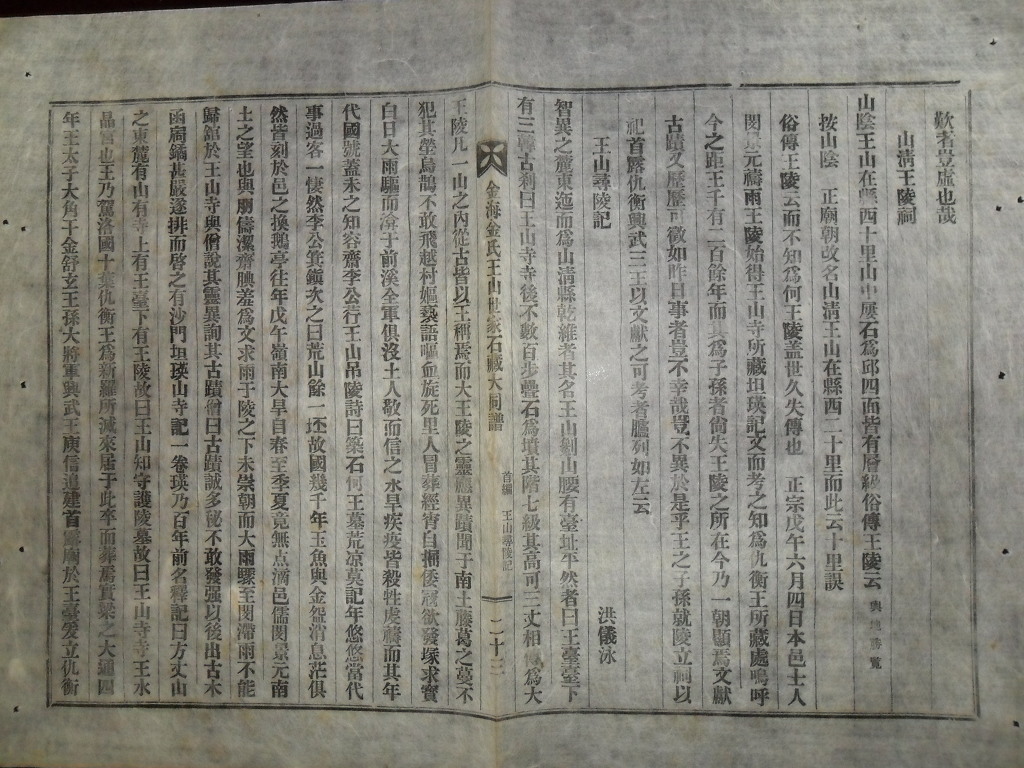 歎者豈虛也哉
山淸王陵祠
山陰王山在縣西四十里山中疊石爲邱四面皆有層級俗傳王陵云 輿地勝覽
按山陰 正廟朝改名山淸王山在縣西二十里而此云十里誤
俗傳王陵云而不知爲何王陵盖世久失傳也 正宗戊午六月四日本邑士人
閔景元禱雨王陵始得王山寺所藏坦瑛記文而考之知爲仇衡王所藏處嗚呼
今之距王千有二百餘年而其爲子孫者尙失王陵之所在今乃一朝顯焉文獻
古蹟又歷歷可徵如昨日事者豈不幸哉豈不異於是乎王之子孫就陵立祠以
祀首露仇衡興武三王以文獻之可考者臚列如左云
王山尋陵記
洪儀泳
智異之麓東迤而爲山淸縣乾維者其名王山剗山腰有臺址平然者曰王臺臺下
有三韓古刹曰王山寺寺後不數百步疊石爲墳其階七級其高可三丈相傳爲大
金海金氏王山世家石藏大同譜 首編 王山尋陵記 二十三
王陵凡一山之內從古皆以王稱焉而大王陵之靈應異蹟聞于南土藤葛之蔓不
犯其塋烏鵲不敢飛越村嫗褻語嘔血旋死里人冒葬經宵自捆倭寇欲發塚求寶
白日大雨驅而渰于前溪全軍俱沒土人敬而信之水旱疾疫皆殺牲虔禱而其年
代國號蓋未之知容齋李公行王山吊陵詩曰築石何王墓荒凉莫記年悠悠當代
事過客一悽然李公箕鎭次之曰荒山餘一抔故國幾千年玉魚與金盌消息茫俱
然皆刻於邑之換鵝亭往年戊午嶺南大旱自春至季夏竟無点滴邑儒閔景元南
土之望也與朋儔潔齋腆羞爲文求雨于陵之下未崇朝而大雨驟至閔滯雨不能
歸舘於王山寺與僧說其靈異詢其古蹟僧曰古蹟誠多秘不敢發强以後出古木
函扃鐍甚嚴遂排而啓之有沙門坦瑛山寺記一卷瑛乃百年前名釋記曰方丈山
之東麓有山有寺上有王臺下有王陵故曰王山知守護陵墓故曰王山寺寺王水
晶宮也王乃駕洛國十葉仇衡王爲新羅所滅來居于此卒而葬焉實梁之大通四
年王太子大角干金舒玄王孫大將軍興武王庾信追建首露廟於王臺爰立仇衡